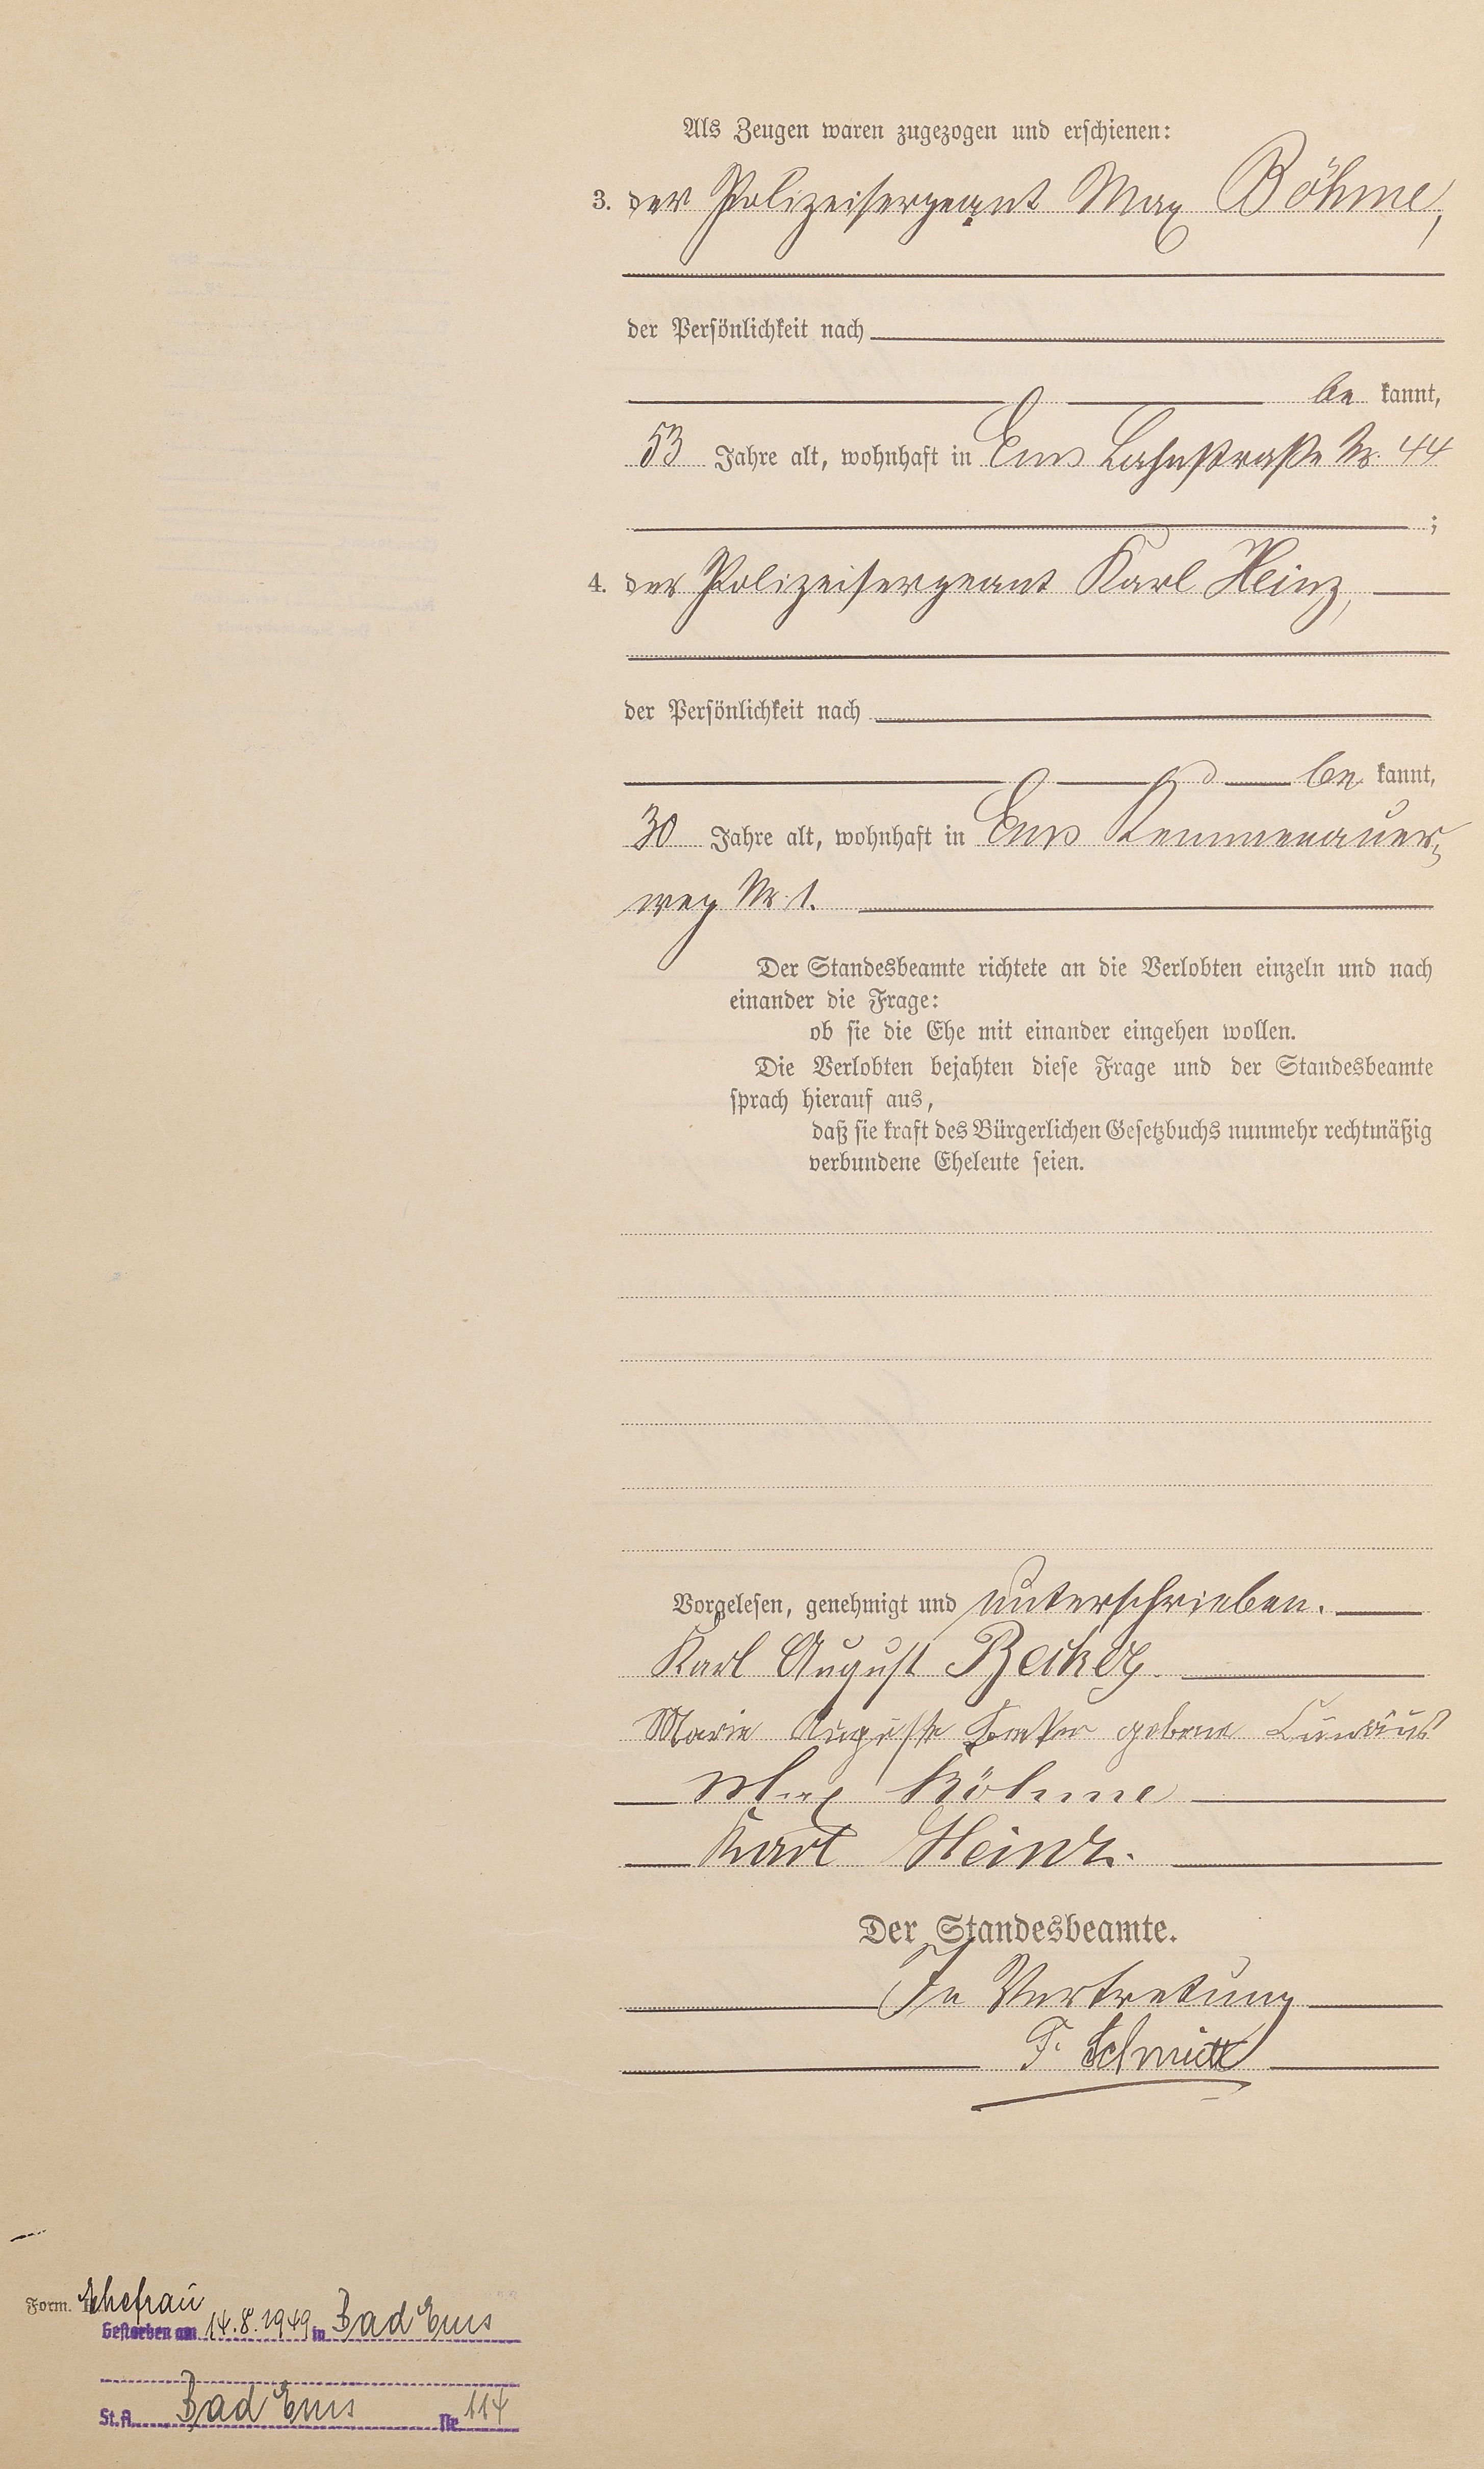 Als Zeugen waren zugezogen und erschienen:
3. der Polizeisergeant Max Böhme,
der Persönlichkeit nach
be kannt,
53 Jahre alt, wohnhaft in Ems Lahnstraße Nr. 44
;
4. der Polizeisergeant Karl Heinz,
der Persönlichkeit nach
be kannt,
30 Jahre alt, wohnhaft in Ems Kemmenauer-
weg Nr. 1.
Der Standesbeamte richtete an die Verlobten einzeln und nach
einander die Frage:
ob sie die Ehe mit einander eingehen wollen.
Die Verlobten bejahten diese Frage und der Standesbeamte
sprach hierauf aus,
daß sie kraft des Bürgerlichen Gesetzbuchs nunmehr rechtmäßig
verbundene Eheleute seien.
Vorgelesen, genehmigt und unterschrieben.
Karl August Becker
Marie Auguste Becker geborne
Max Böhme
Karl Heinz.
Der Standesbeamte.
In Vertretung
F. Schmitt
Form. Ehefrau
Gestorben am 14.8.1949 in Bad Ems
St.A. Bad Ems Nr 114